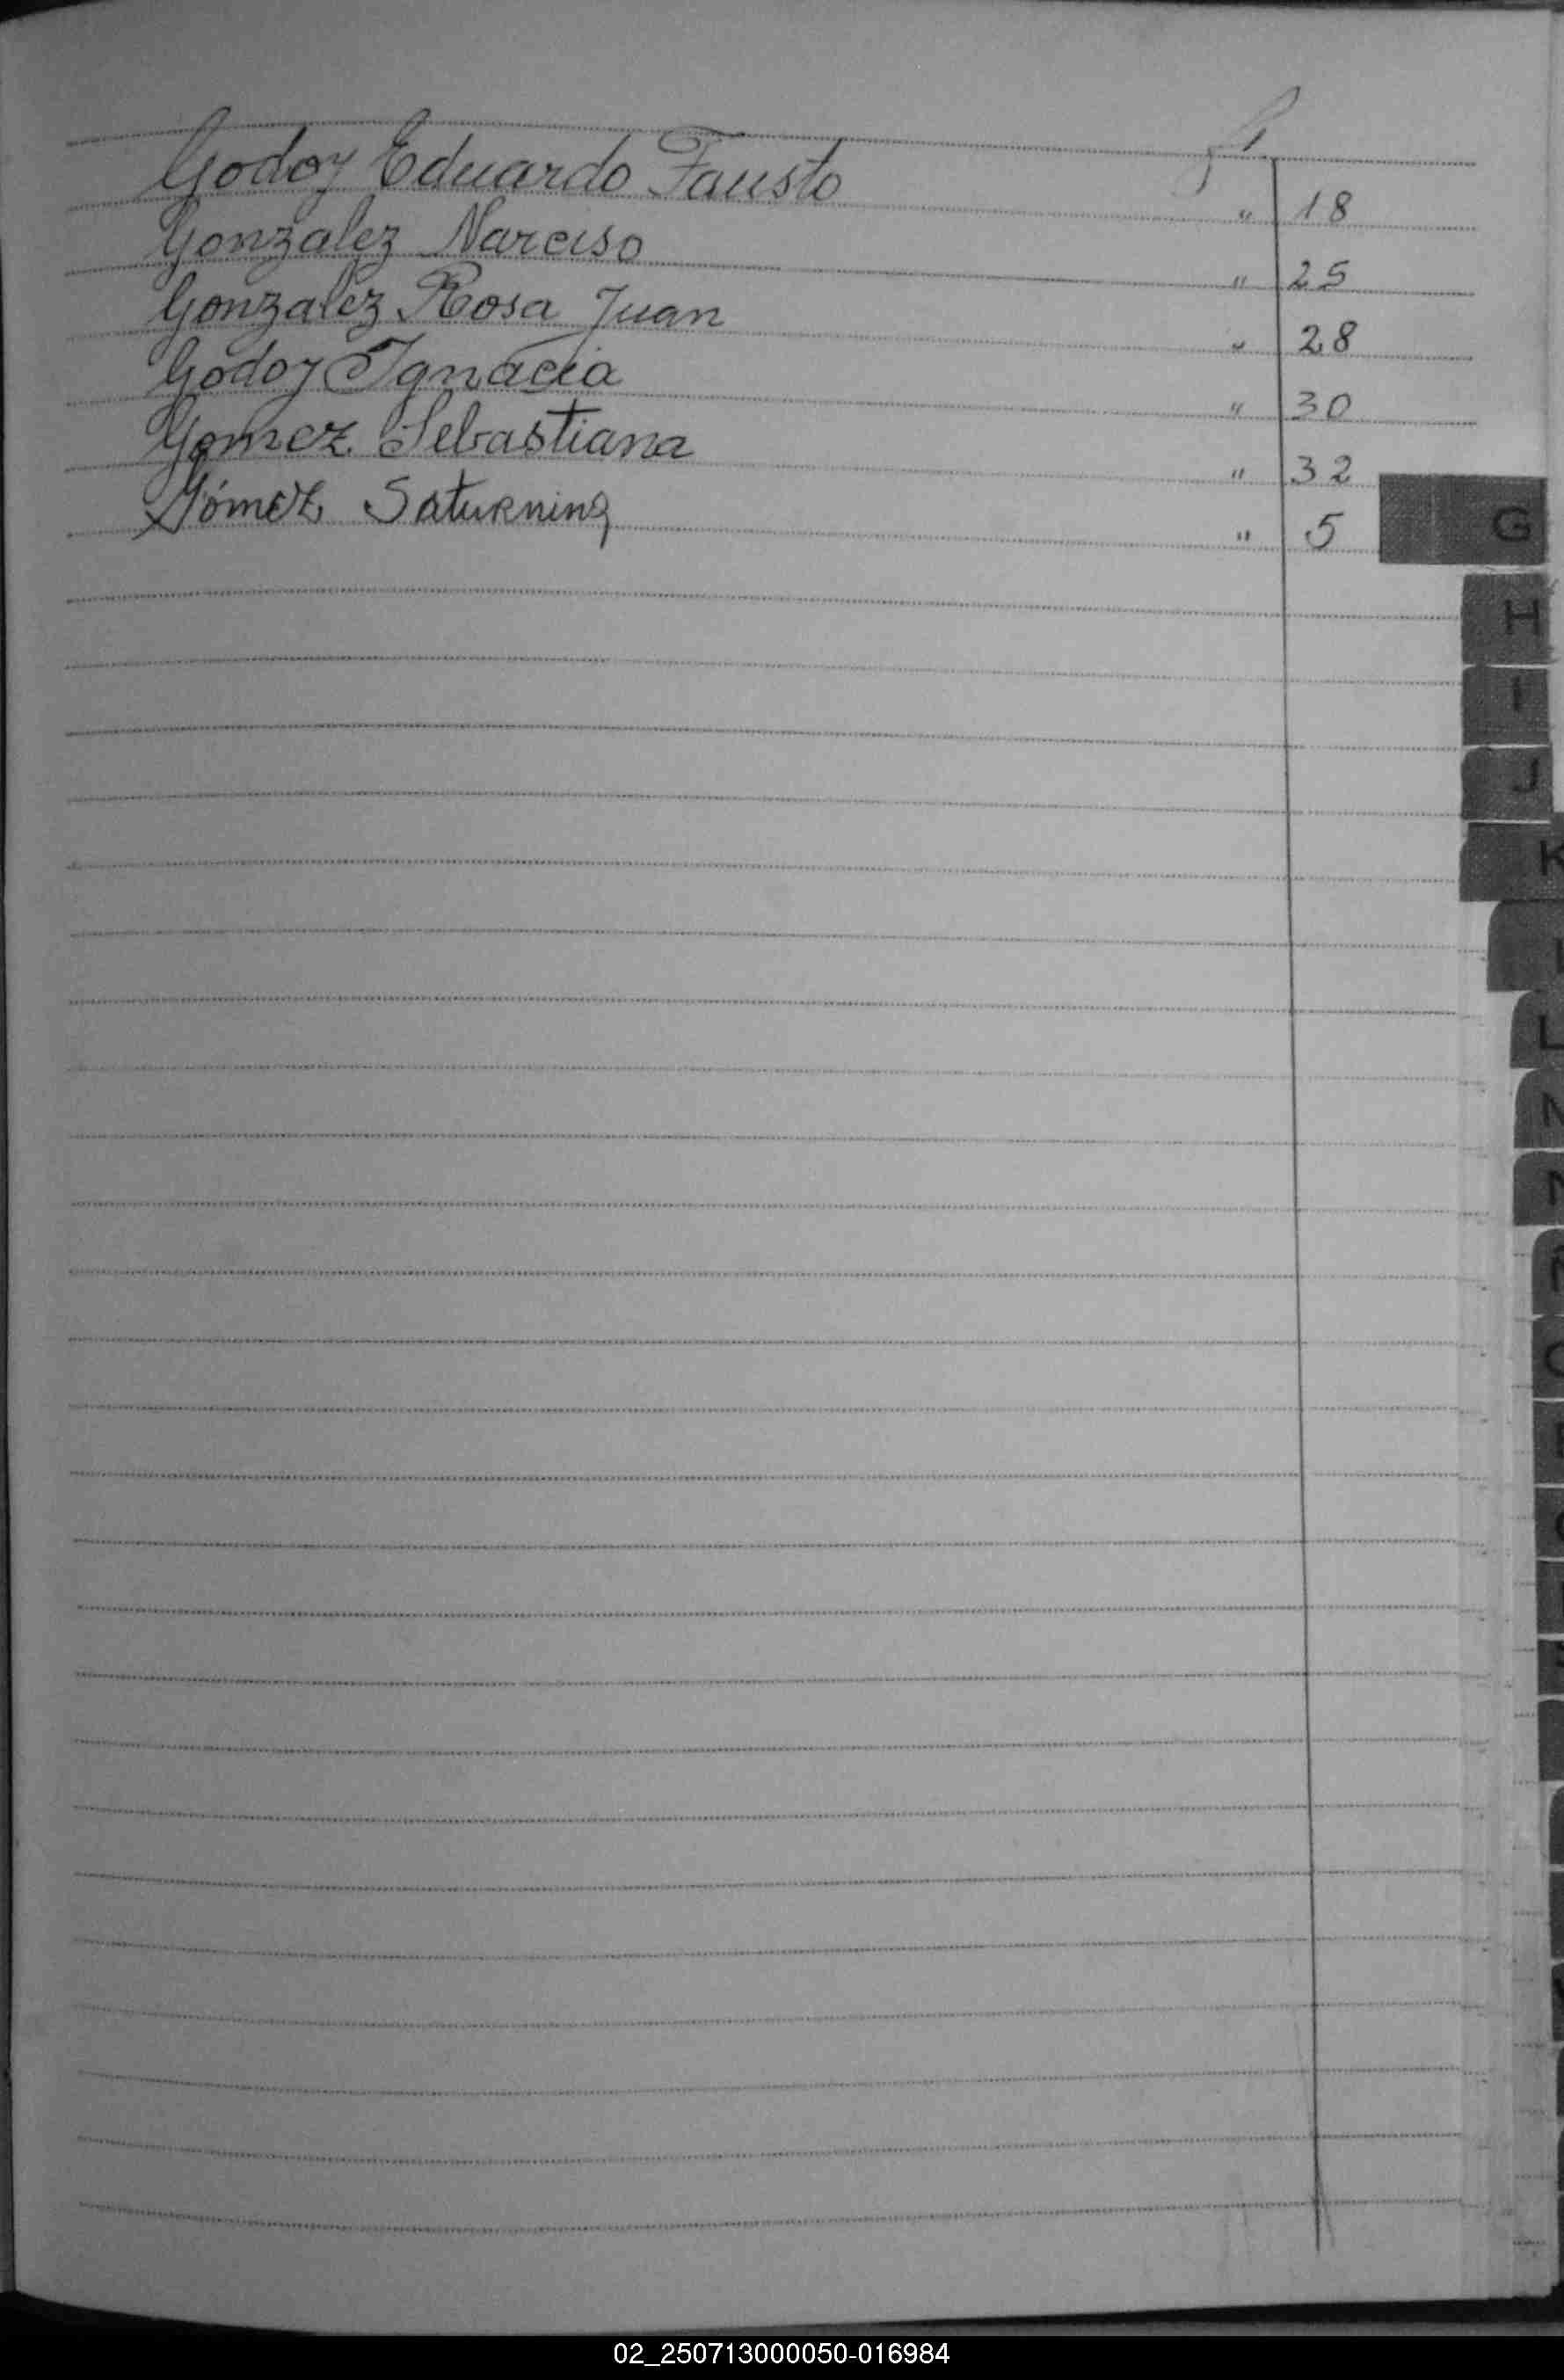 f.
Godoy Eduardo Fausto " 18
Gonzalez Narciso " 25
Gonzalez Rosa Juan " 28
Godoy Ignacia " 30
Gomez Sebastiana " 32
Gómez Saturnina " 5
G
H
I
J
K
L
N
N
02_250713000050-016984